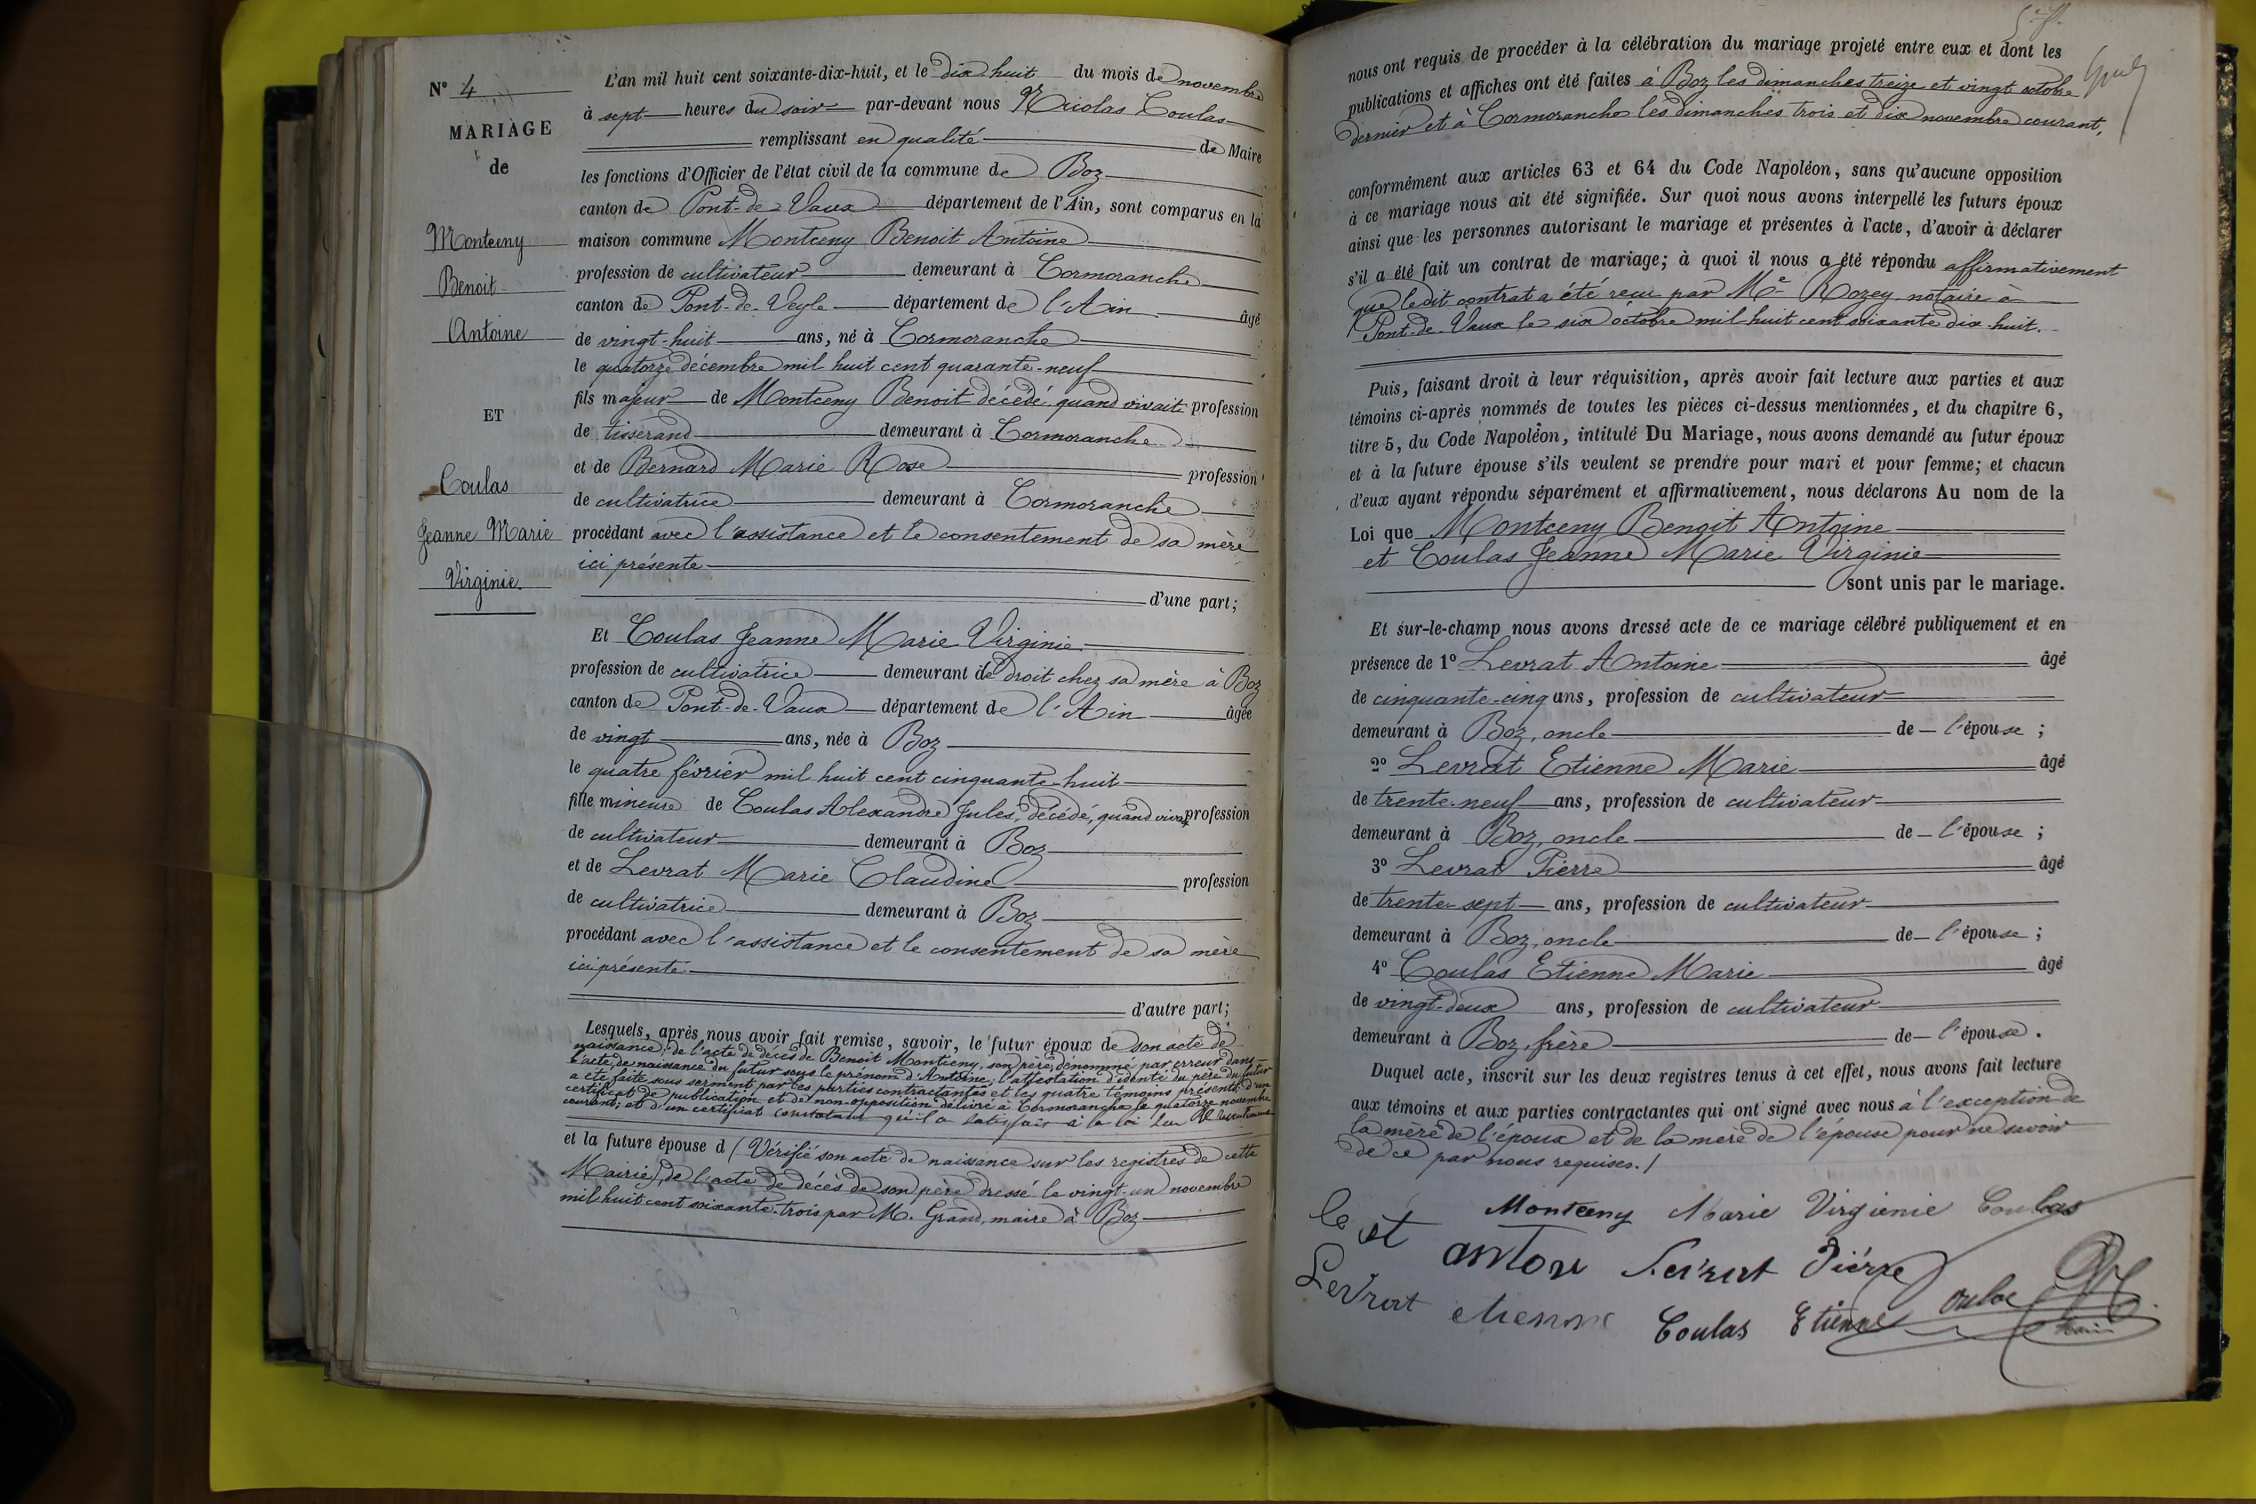 N° 4
MARIAGE
de
Montceny
Benoit
Antoine
ET
Coulas
Jeanne Marie
Virginie.
L'an mil huit cent soixante-dix-huit, et le dix huit du mois de novembre
à sept heures du soir par-devant nous Nicolas Coulas
remplissant en qualité de Maire
les fonctions d'Officier de l'état civil de la commune de Boz
canton de Pont-de-Vaux département de l'Ain, sont comparus en la
maison commune Montceny Benoit Antoine
profession de cultivateur demeurant à Cormoranche
canton de Pont-de-Veyle département de l'Ain âgé
de vingt-huit ans, né à Cormoranche
le quatorze décembre mil huit cent quarante-neuf
fils majeur de Montceny Benoit décédé, quand vivait profession
de tisserand demeurant à Cormoranche
et de Bernard Marie Rose profession
de cultivatrice demeurant à Cormoranche
procédant avec l'assistance et le consentement de sa mère
ici présente
d'une part;
Et Coulas Jeanne Marie Virginie
profession de cultivatrice demeurant de droit chez sa mère à Boz
canton de Pont-de-Vaux département de l'Ain âgée
de vingt ans, née à Boz
le quatre février mil huit cent cinquante-huit
fille mineure de Coulas Alexandre Jules, décédé, quand vivait profession
de cultivateur demeurant à Boz
et de Levrat Marie Claudine profession
de cultivatrice demeurant à Boz
procédant avec l'assistance et le consentement de sa mère
ici présente
d'autre part;
Lesquels, après nous avoir fait remise, savoir, le futur époux de son acte de
naissance; de l'acte de décès de Benoit Montceny, son père, dénommé par erreur dans
l'acte de naissance du futur sous le prénom d'Antoine, l'attestation d'identé du père du futur
a été faite sous serment par les parties contractantes et les quatre témoins présents; d'un
certificat de publication et de non-opposition délivré à Cormoranche le quatorze novembre
courant; et d'un certificat constatant qu'il a satisfait à la loi du Recrutement
et la future épouse d (Vérifié son acte de naissance sur les registres de cette
Mairie), de l'acte de décès de son père dressé le vingt-un novembre
mil huit cent soixante-trois par M. Grand, maire à Boz
nous ont requis de procéder à la célébration du mariage projeté entre eux et dont les
publications et affiches ont été faites à Boz les dimanches treize et vingt octobre
dernier et à Cormoranche les dimanches trois et dix novembre courant,
conformément aux articles 63 et 64 du Code Napoléon, sans qu'aucune opposition
à ce mariage nous ait été signifiée. Sur quoi nous avons interpellé les futurs époux
ainsi que les personnes autorisant le mariage et présentes à l'acte, d'avoir à déclarer
s'il a été fait un contrat de mariage; à quoi il nous a été répondu affirmativement
que ledit contrat a été reçu par Me Rozey, notaire à
Pont-de-Vaux le six octobre mil huit cent soixante dix huit.
Puis, faisant droit à leur réquisition, après avoir fait lecture aux parties et aux
témoins ci-après nommés de toutes les pièces ci-dessus mentionnées, et du chapitre 6,
titre 5, du Code Napoléon, intitulé Du Mariage, nous avons demandé au futur époux
et à la future épouse s'ils veulent se prendre pour mari et pour femme; et chacun
d'eux ayant répondu séparément et affirmativement, nous déclarons Au nom de la
Loi que Montceny Benoit Antoine
et Coulas Jeanne Marie Virginie
sont unis par le mariage.
Et sur-le-champ nous avons dressé acte de ce mariage célébré publiquement et en
présence de 1° Levrat Antoine âgé
de cinquante-cinq ans, profession de cultivateur
demeurant à Boz, oncle de l'épouse;
2° Levrat Etienne Marie âgé
de trente-neuf ans, profession de cultivateur
demeurant à Boz, oncle de l'épouse;
3° Levrat Pierre âgé
de trente-sept ans, profession de cultivateur
demeurant à Boz, oncle de l'épouse;
4° Coulas Etienne Marie âgé
de vingt-deux ans, profession de cultivateur
demeurant à Boz, frère de l'épouse.
Duquel acte, inscrit sur les deux registres tenus à cet effet, nous avons fait lecture
aux témoins et aux parties contractantes qui ont signé avec nous à l'exception de
la mère de l'époux et de la mère de l'épouse pour ne savoir
de ce par nous requises./
Montceny Marie Virginie Coulas
Pierre
Levrat etienne Coulas Etienne